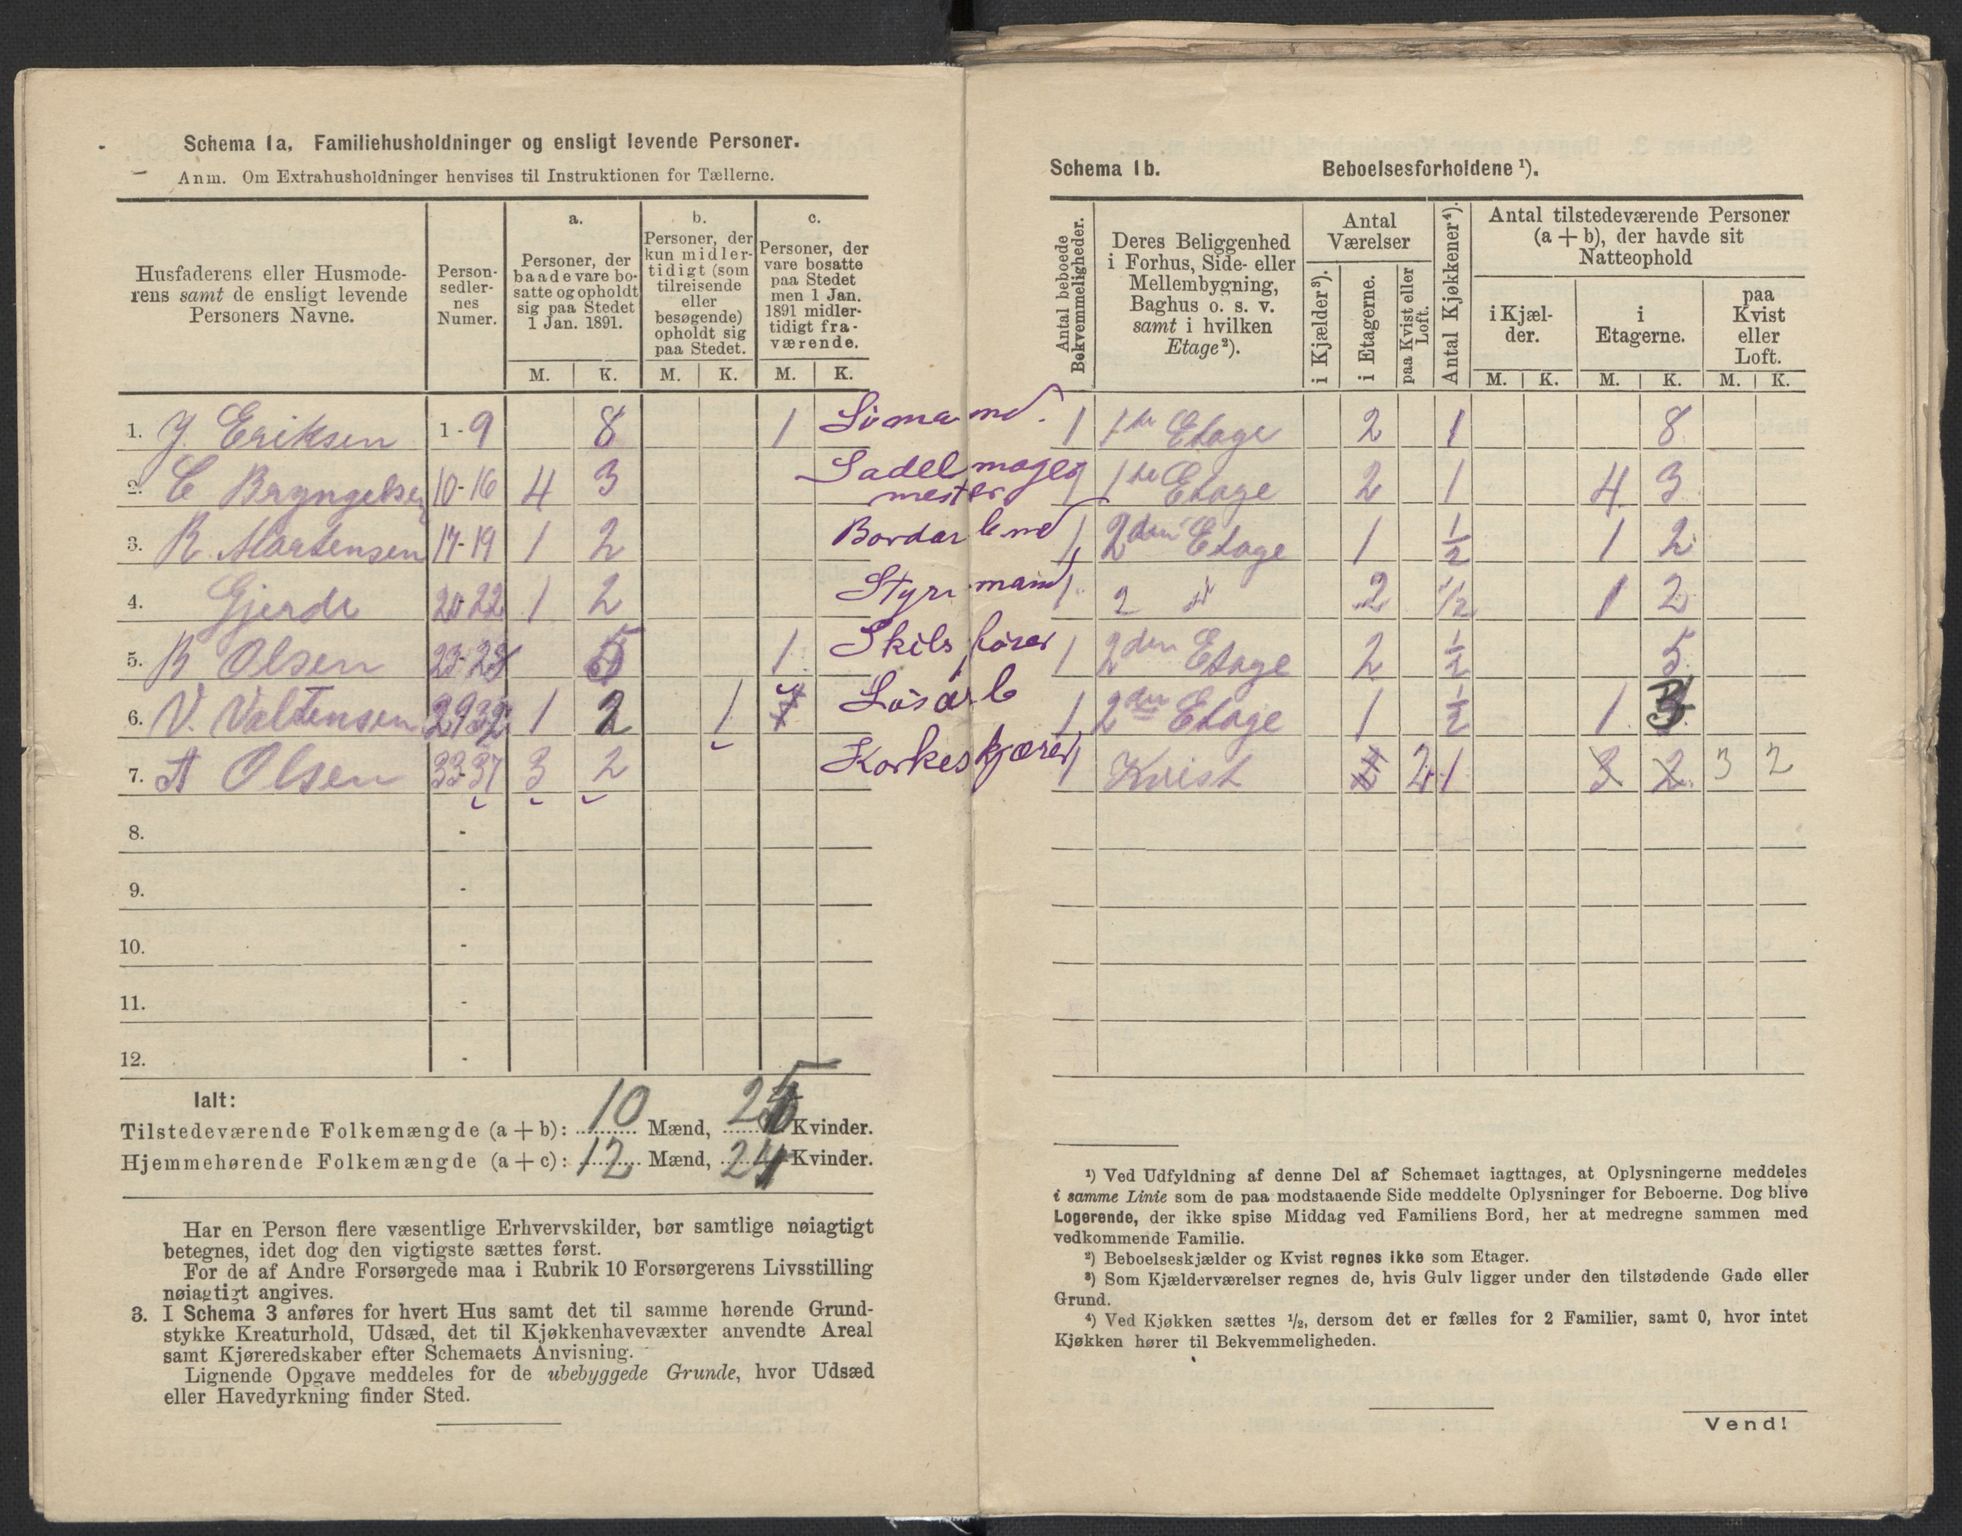 Schema 1a. Familiehusholdninger og ensligt levende Personer.
Anm. Om Extrahusholdninger henvises til Instruktionen for Tællerne.
Husfaderens eller Husmoderens samt de ensligt levende Personers Navne.
Personsedlernes Numer.
a. Personer, der baade vare bosatte og opholdt sig paa Stedet 1 Jan. 1891.
b. Personer, der kun midlertidigt (som tilreisende eller besøgende) opholdt sig paa Stedet.
c. Personer, der vare bosatte paa Stedet men 1 Jan. 1891 midlertidigt fraværende.
M. K. M. K. M. K.
1. J. Eriksen 1-9 8 1 Sömand.
2. C Bryngelsen 10-16 4 3 Sadelmager mester
3. R. Martensen 17-19 1 2 Bordarbend
4. Gjerde 20-22 1 2 Styrmand
5. B Olsen 23-28 5 1 Skibsförer
6. V. Valtensen 29-32 1 2 1 Lösarb
7. A Olsen 33-37 3 2 Korkeskjærer
8. -
9. -
10. -
11. -
12. -
Ialt:
Tilstedeværende Folkemængde (a + b): 10 Mænd, 25 Kvinder.
Hjemmehørende Folkemængde (a + c): 12 Mænd, 24 Kvinder.
Har en Person flere væsentlige Erhvervskilder, bør samtlige nøiagtigt
betegnes, idet dog den vigtigste sættes først.
For de af Andre Forsørgede maa i Rubrik 10 Forsørgerens Livsstilling
nøiagtigt angives.
3. I Schema 3 anføres for hvert Hus samt det til samme hørende Grund-
stykke Kreaturhold, Udsæd, det til Kjøkkenhavevæxter anvendte Areal
samt Kjøreredskaber efter Schemaets Anvisning.
Lignende Opgave meddeles for de ubebyggede Grunde, hvor Udsæd
eller Havedyrkning finder Sted.
Schema 1b. Beboelsesforholdene ¹).
Antal beboede Bekvemmeligheder.
Deres Beliggenhed i Forhus, Side- eller Mellembygning, Baghus o. s. v. samt i hvilken Etage²).
Antal Værelser
i Kjælder³).
i Etagerne.
paa Kvist eller Loft.
Antal Kjøkkener⁴).
Antal tilstedeværende Personer (a + b), der havde sit Natteophold
i Kjælder.
i Etagerne.
paa Kvist eller Loft.
M. K. M. K. M. K.
1 1ste Etage 2 1 8
1 1ste Etage 2 1 4 3
1 2den Etage 1 ½ 1 2
1 2 " 2 ½ 1 2
1 2den Etage 2 ½ 5
1 2den Etage 1 ½ 1 3
1 Kvist 2 2 1 3 2 3 2
¹) Ved Udfyldning af denne Del af Schemaet iagttages, at Oplysningerne meddeles
i samme Linie som de paa modstaaende Side meddelte Oplysninger for Beboerne. Dog blive
Logerende, der ikke spise Middag ved Familiens Bord, her at medregne sammen med
vedkommende Familie.
²) Beboelseskjælder og Kvist regnes ikke som Etager.
³) Som Kjælderværelser regnes de, hvis Gulv ligger under den tilstødende Gade eller
Grund.
⁴) Ved Kjøkken sættes ½, dersom det er fælles for 2 Familier, samt 0, hvor intet
Kjøkken hører til Bekvemmeligheden.
Vend!